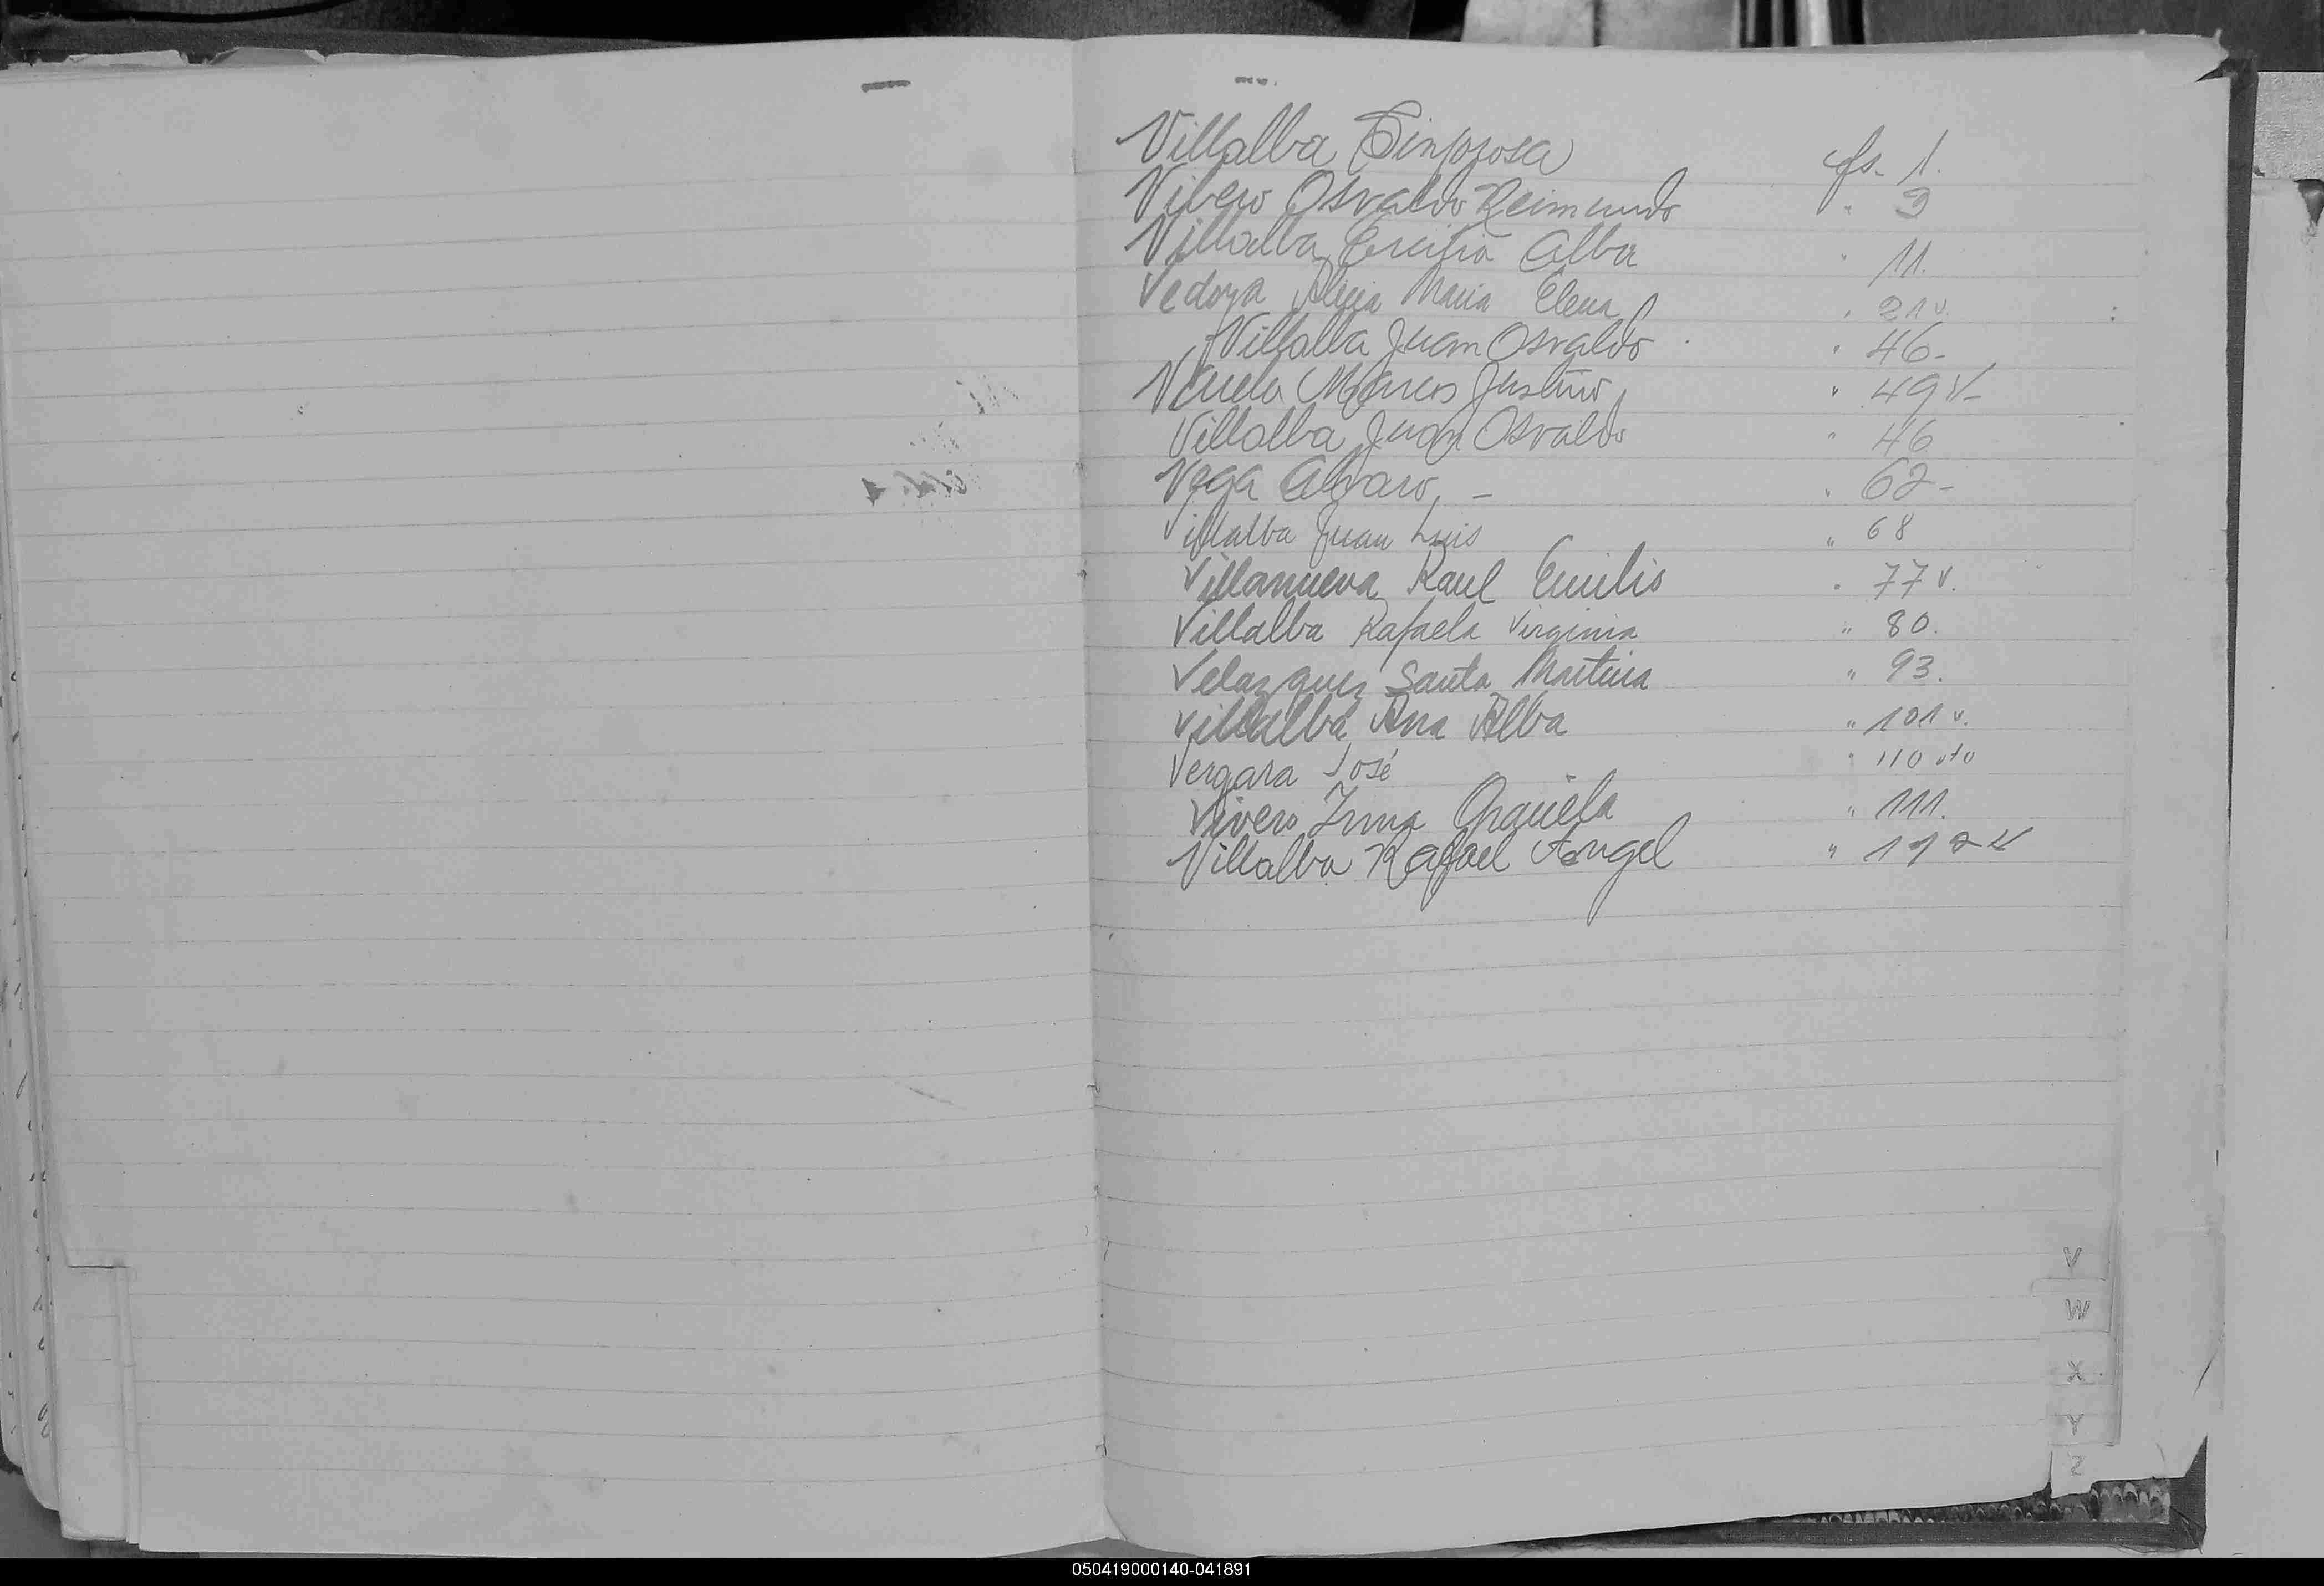 Villalba Sinforosa fs. 1.
Vibero Osvaldo Reimundo " 9
Villalba Ercilia Alba " 11.
Vedoya Alicia Maria Elena " 21 v.
Villalba Juan Osvaldo " 46-
Varela Marcos Justino " 49 v-
Villalba Juan Osvaldo " 46
Vega Alvaro, - " 62-
Villalba Juan Luis " 68
Villanueva Raul Emilio " 77 v.
Villalba Rafaela Virginia " 80.
Velazquez Santa Martina " 93.
Villalba Ana Alba " 101 v.
Vergara José " 110 vto
Vivero Irma Graciela " 111.
Villalba Rafael Angel " 112 v
V
W
X
Y
Z
050419000140-041891